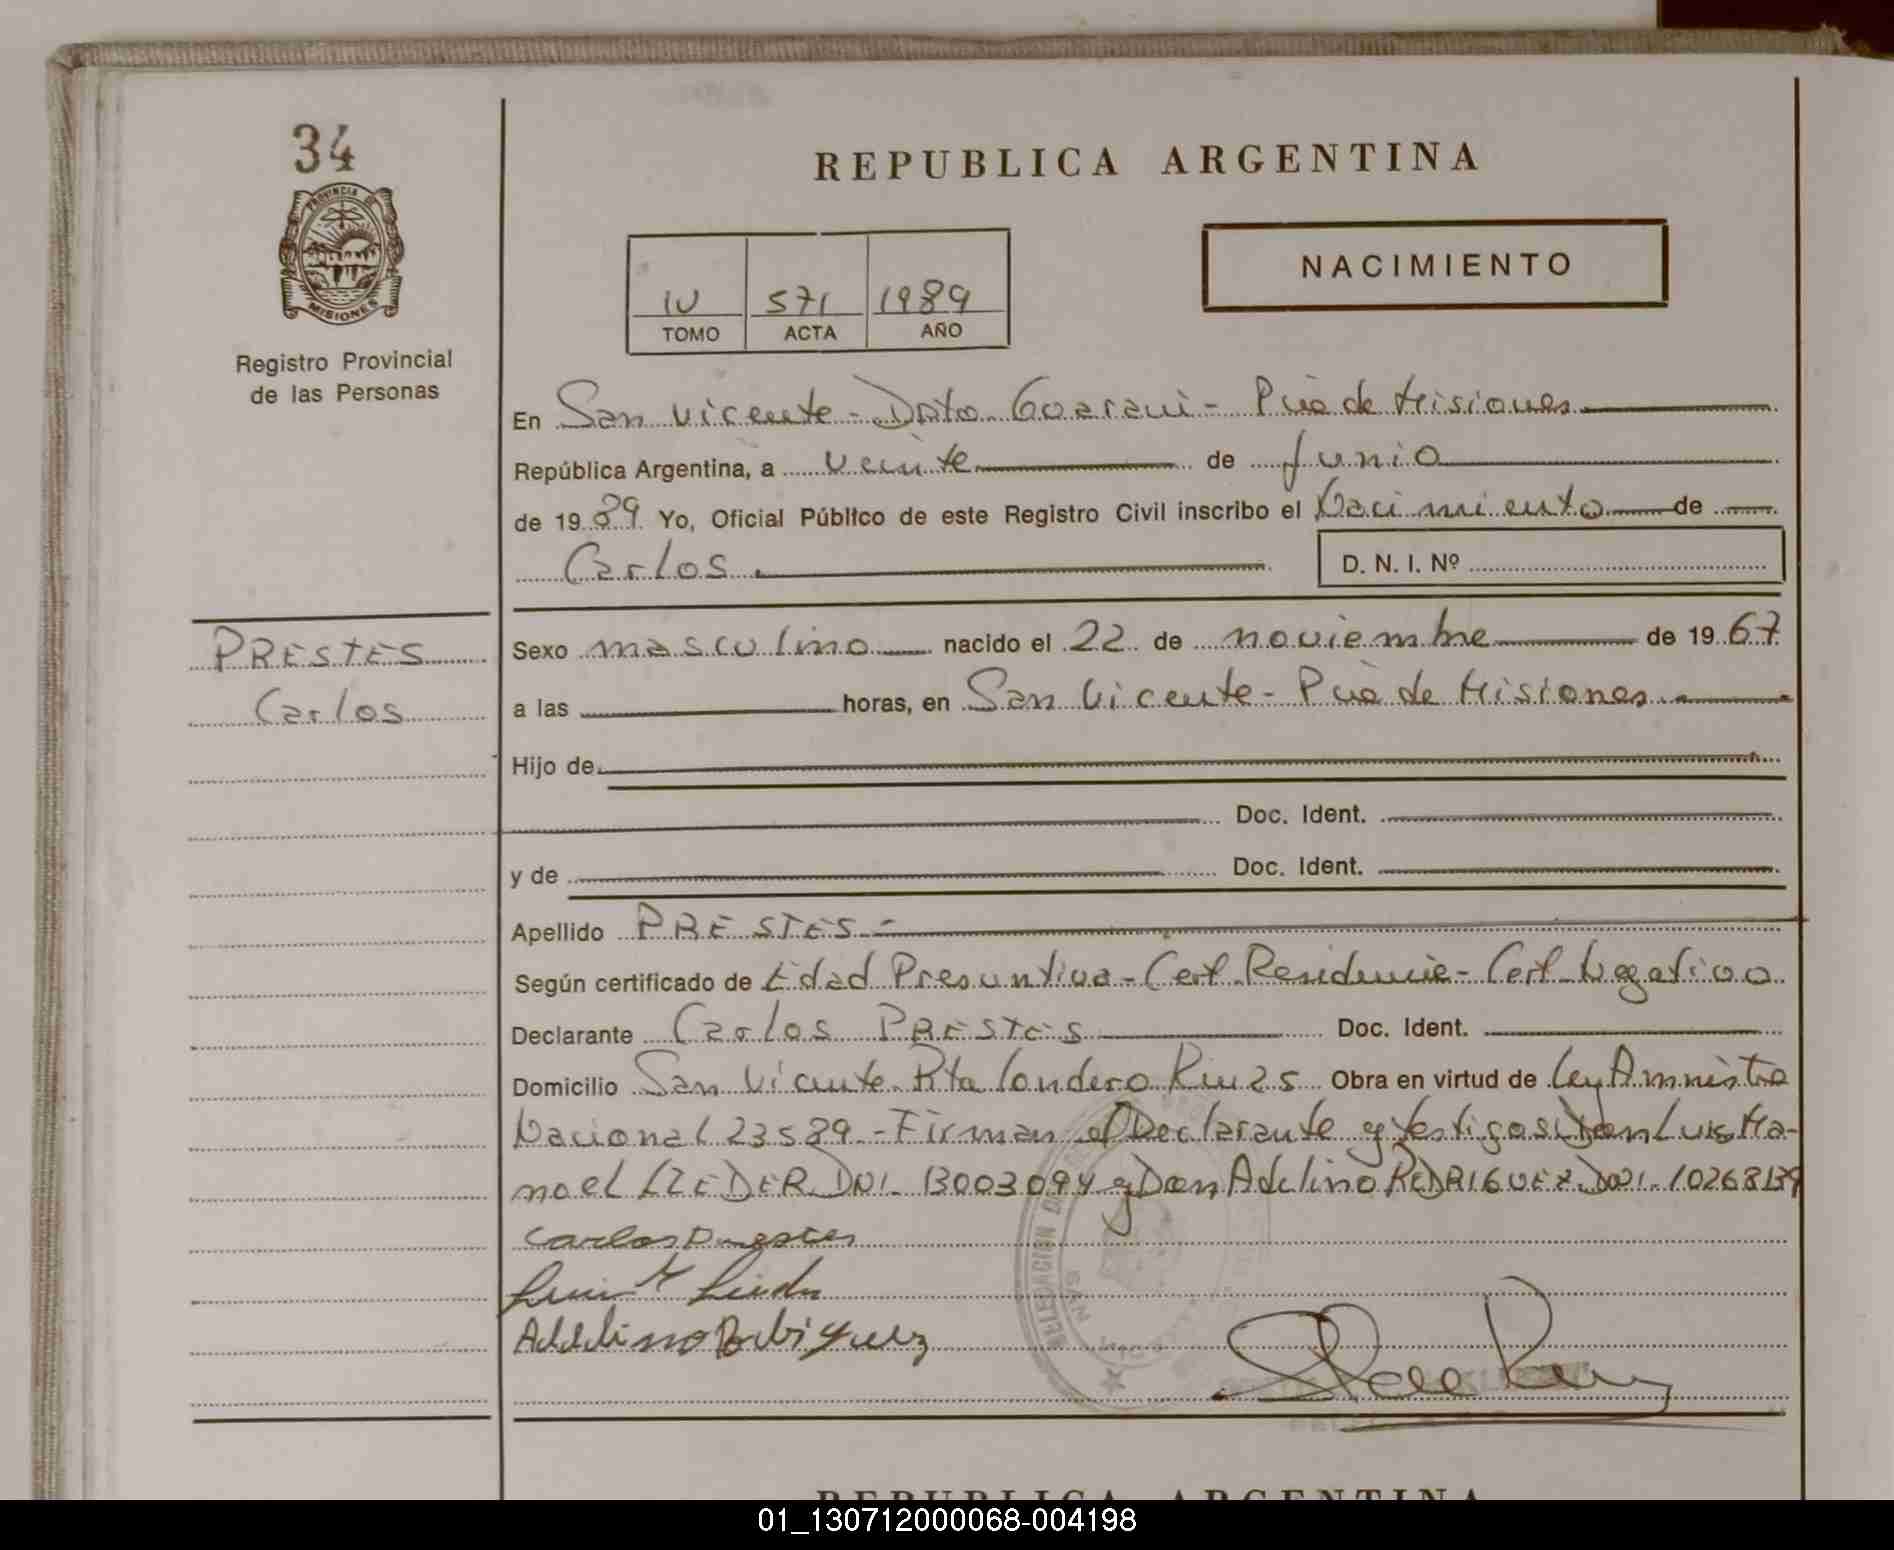 34
PROVINCIA DE
MISIONES
Registro Provincial
de las Personas
REPUBLICA ARGENTINA
IV 571 1989
TOMO ACTA AÑO
NACIMIENTO
En San Vicente - Dpto Guarani - Pcia de Misiones
República Argentina, a veinte de Junio
de 1989 Yo, Oficial Público de este Registro Civil inscribo el Nacimiento de
Carlos
D. N. I. Nº
PRESTES
Carlos
Sexo masculino nacido el 22 de noviembre de 1967
a las horas, en San Vicente - Pcia de Misiones
Hijo de
Doc. Ident.
y de Doc. Ident.
Apellido PRESTES -
Según certificado de Edad Presuntiva - Cert. Residencia - Cert. Negativo
Declarante Carlos PRESTES Doc. Ident.
Domicilio San Vicente Londero Km 25 Obra en virtud de Ley Amnistia
Nacional 23589 - Firman el Declarante y testigos Don Luis Ma-
noel DNI. 13003094 y Don Adelino RODRIGUEZ DNI. 10268139
Carlos Prestes
Luis M
Adelino Rodriguez
DELEGACION
SAN VICENTE
REPUBLICA ARGENTINA
01_130712000068-004198